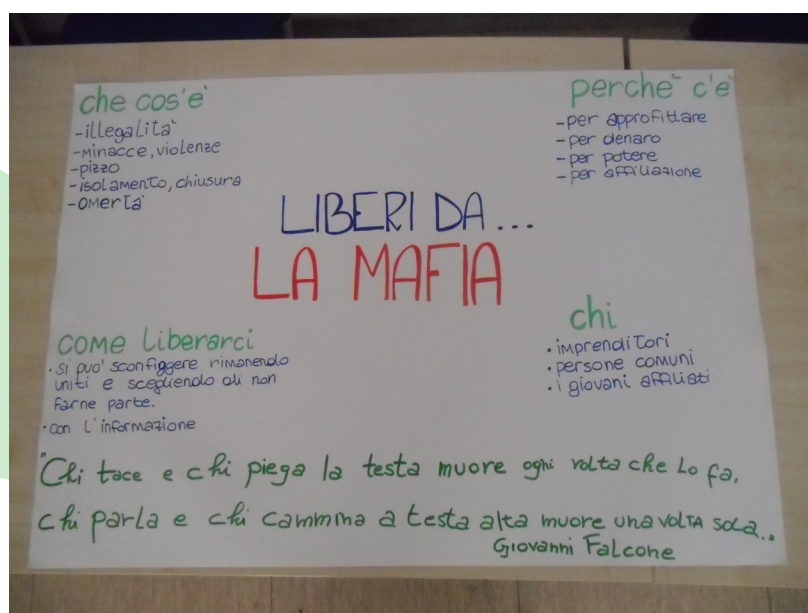 che cos'e'
-illegalita'
-minacce, violenze
-pizzo
-isolamento, chiusura
-omerta'
perche' c'e'
-per approfittare
-per denaro
-per potere
-per affiliazione
LIBERI DA...
LA MAFIA
come liberarci
•si puo' sconfiggere rimanendo
uniti e scegliendo di non
farne parte.
•con l'informazione
chi
•imprenditori
•persone comuni
•i giovani affiliati
"Chi tace e chi piega la testa muore ogni volta che lo fa,
chi parla e chi cammina a testa alta muore una volta sola..
Giovanni Falcone